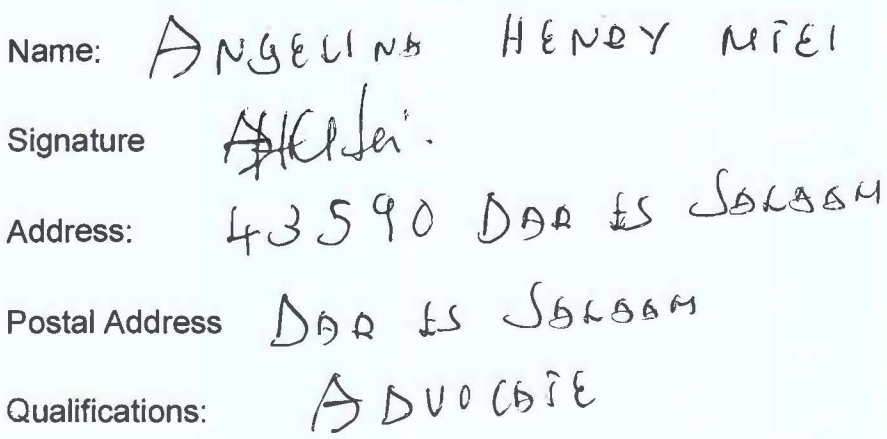 Name: ANGELINA HENRY MTEI
Signature
Address: 43590 DAR ES SALAAM
Postal Address DAR ES SALAAM
Qualifications: ADVOCATE